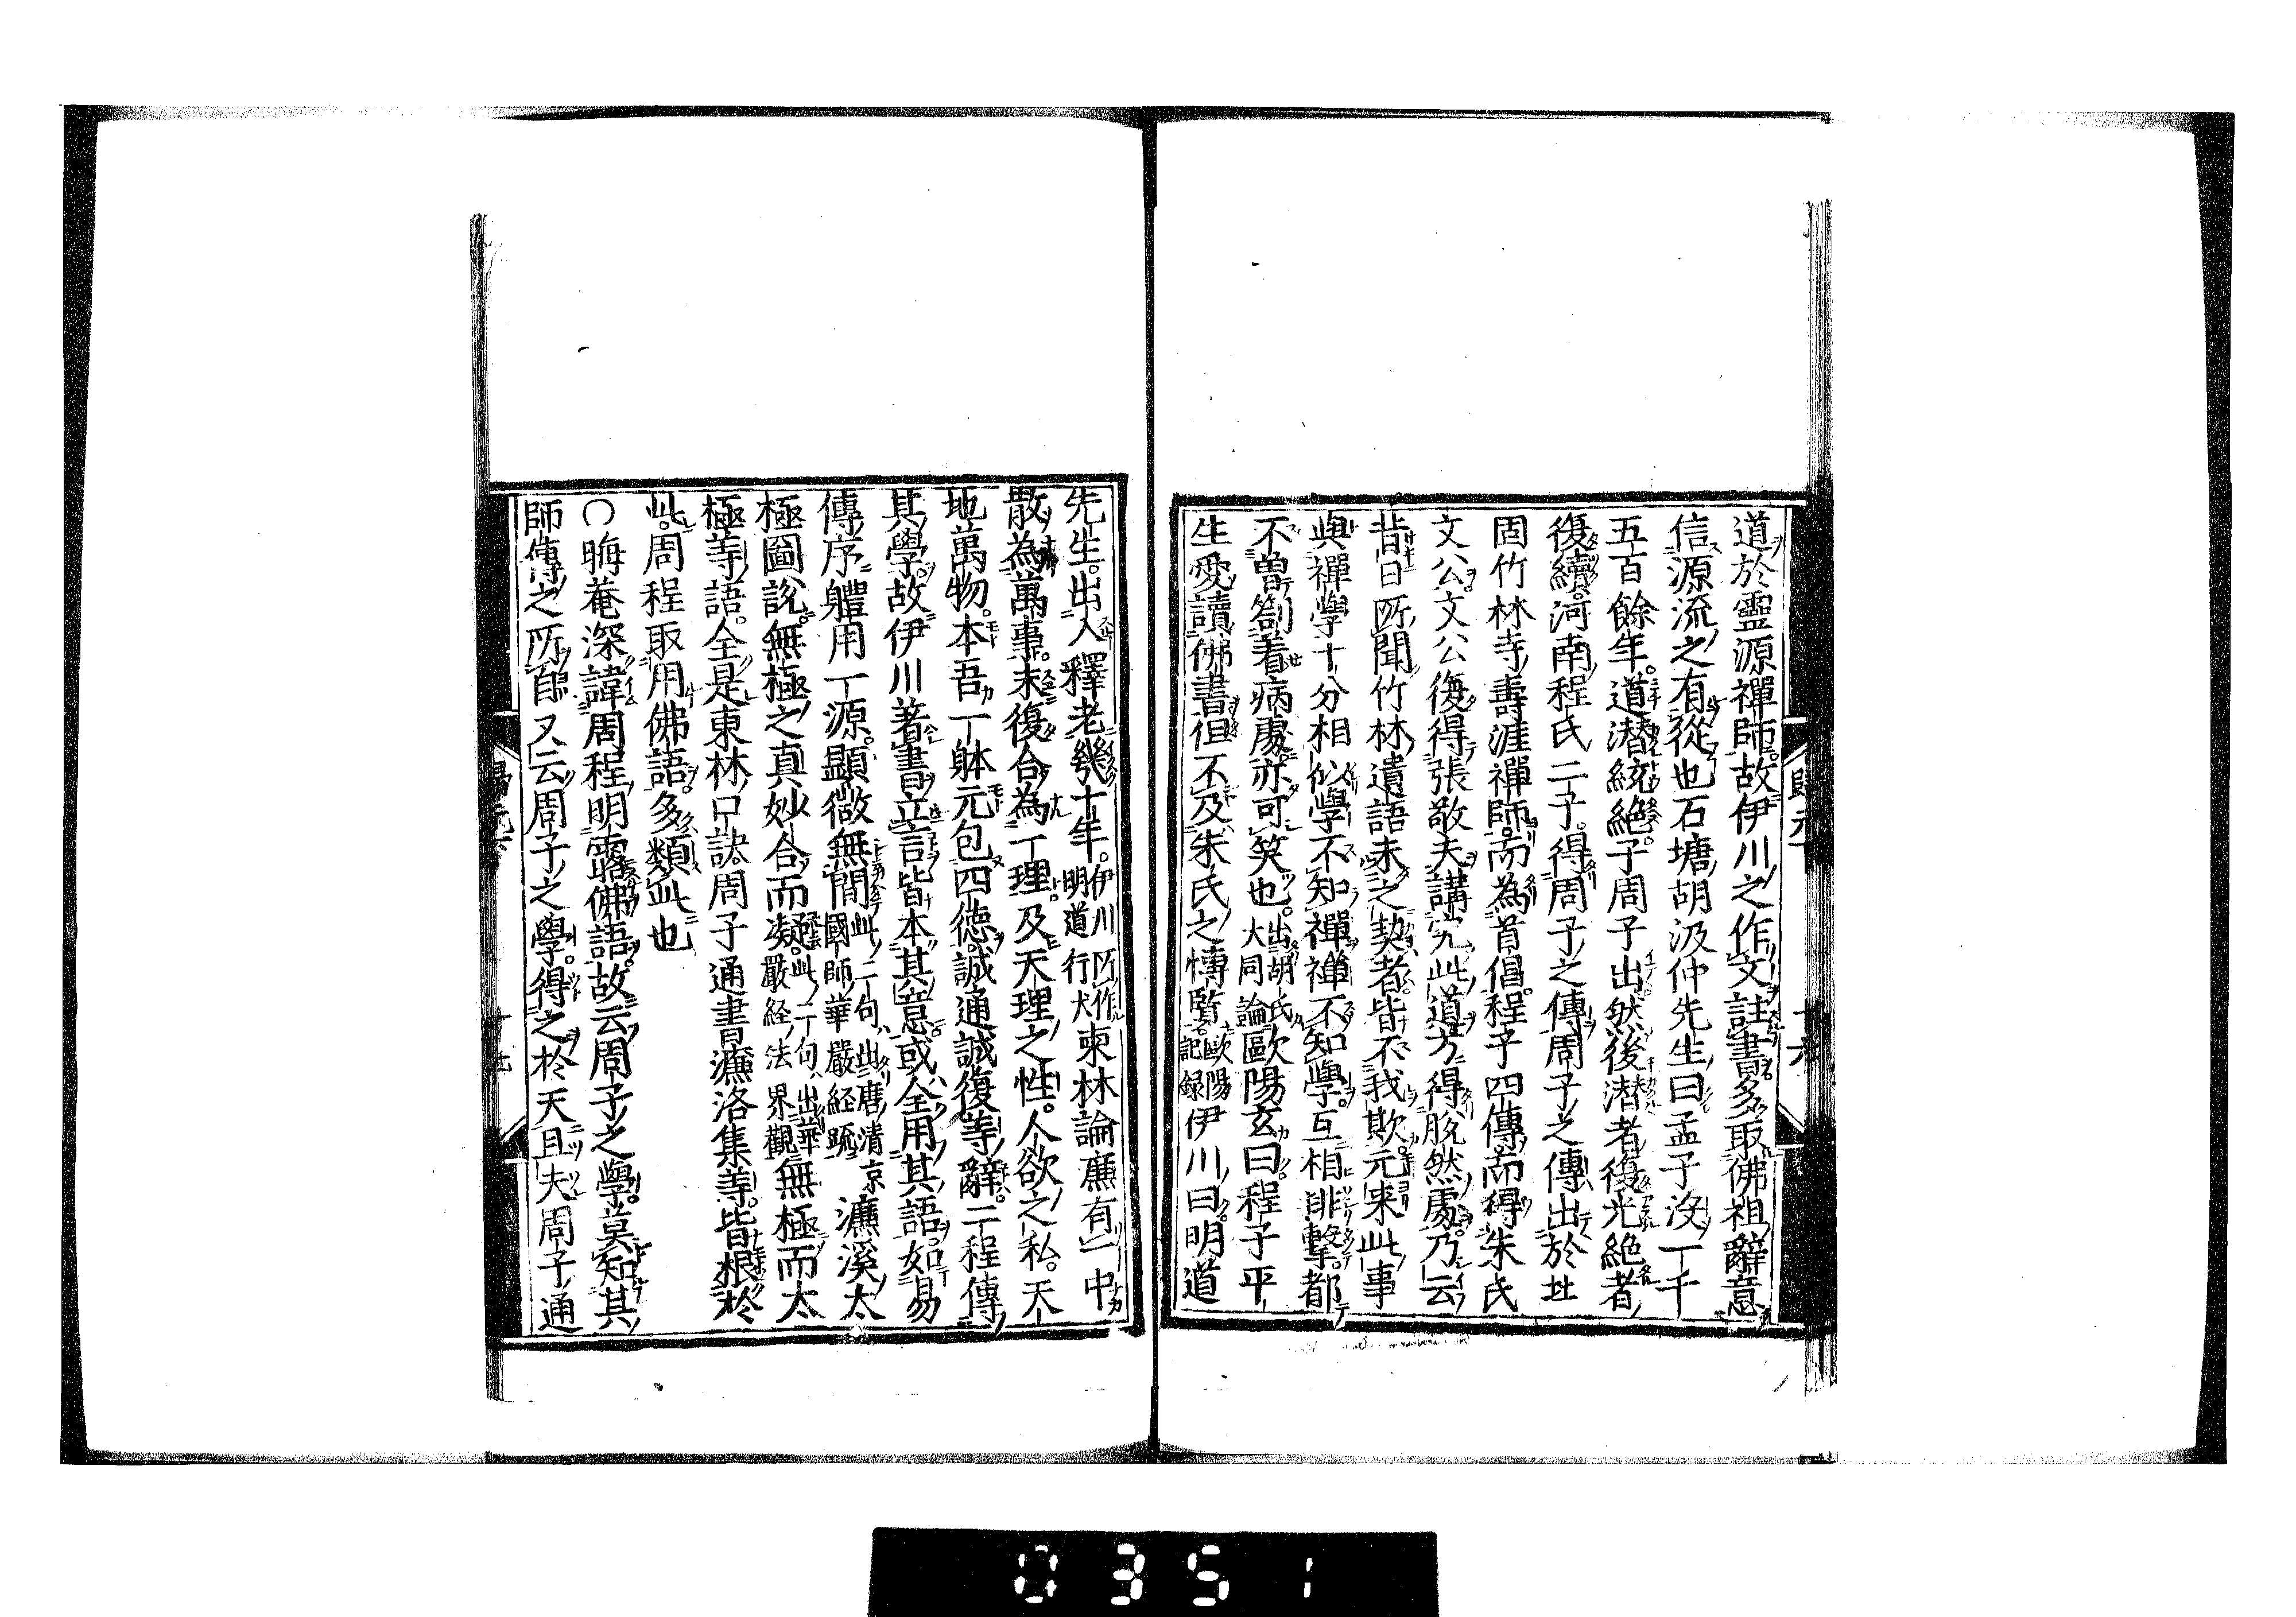 道於靈源禪師故伊川之作文註書多取佛祖辭意
信源流之有從也石塘胡汲仲先生曰孟子沒一千
五百餘年道潜統絶子周子出然後潜者復光絶者
復續河南程氏二子得周子之傳周子之傳出於北
固竹林寺壽涯禪師而為首倡程子四傳而得朱氏
文公文公復得張敬夫講究此道方得脫然處乃云
昔日所聞竹林遺語未之契者皆不我欺元来此事
與禪學十分相似學不知禪禅不知學互相排撃都
不曽劄着病處亦可笑也出胡氏大同論歐陽玄曰程子平
生愛讀佛書但不及朱氏之慱覧歐陽記録伊川曰明道
先生出入釋老幾十年伊川所作明道行状東林論廌有一中
散為萬事末復合為一理及天理之性人欲之私天
地萬物本吾一躰元包四徳誠通誠復等辭二程傳
其學故伊川著書立言皆本其意或全用其語如易
傳序軆用一源顯微無間此二句出唐清京國師華嚴経䟽濂溪太
極圖說無極之真妙合而凝此一句出華嚴経法界觀無極而太
極等語全是東林口訣周子通書濂洛集等皆根於
此周程取用佛語多類此也
〇晦菴深諱周程明露佛語故云周子之學莫知其
師傳之所自又云周子之學得之於天且夫周子通
歸元
十六
0351